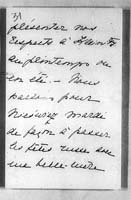 présenter nos
respects à
au printemps ou
en été - Nous
partons pour
mardi
de façon à passer
les fêtes russes avec
ma belle-mère